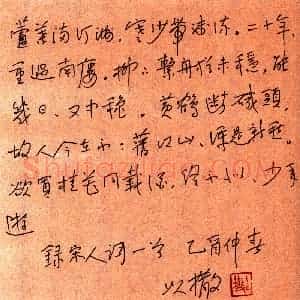 蘆葉滿汀洲，寒沙帶淺流。二十年，
重過南樓。柳下繫舟猶未穩，能
幾日、又中秋。黃鶴斷磯頭，
故人今在不：舊江山、渾是新愁。
欲買桂花同載酒，終不似、少年
遊
錄宋人詞一首 乙酉仲春
以撒